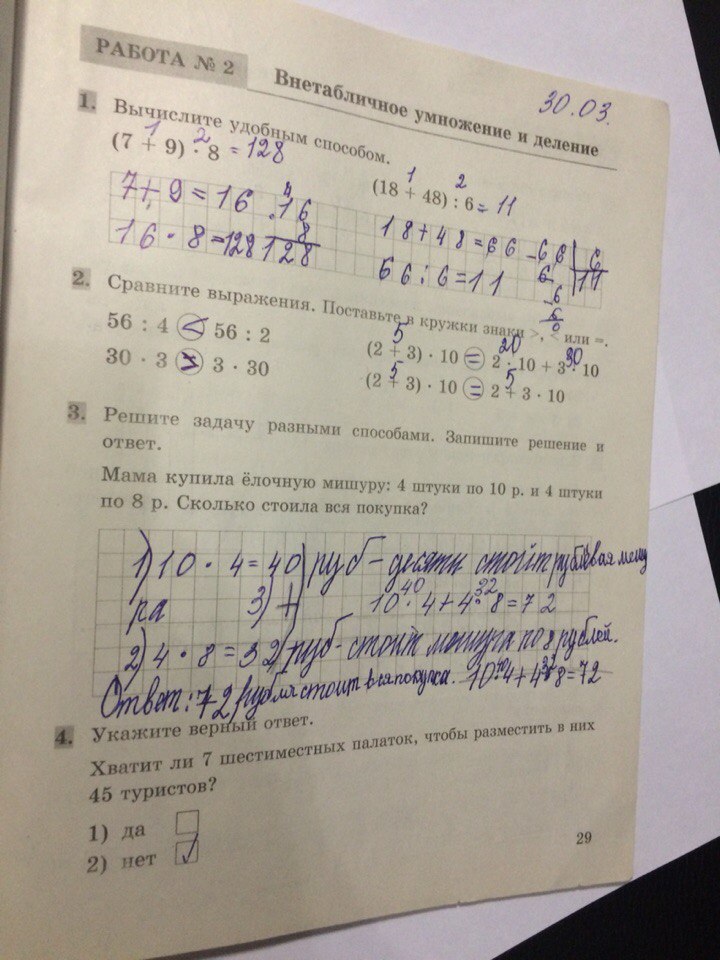 РАБОТА № 2
Внетабличное умножение и деление
30.03.
1. Вычислите удобным способом.
1 2
(7 + 9) · 8 = 128
1 2
(18 + 48) : 6 = 11
7 + 9 = 16
16 · 8 = 128
4
16
8
128
18 + 48 = 66
66 : 6 = 11
66 6
6 11
6
6
0
2. Сравните выражения. Поставьте в кружки знаки >, < или =.
56 : 4 < 56 : 2
30 · 3 > 3 · 30
5 20 30
(2 + 3) · 10 = 2 · 10 + 3 · 10
5 5
(2 + 3) · 10 = 2 + 3 · 10
3. Решите задачу разными способами. Запишите решение и
ответ.
Мама купила ёлочную мишуру: 4 штуки по 10 р. и 4 штуки
по 8 р. Сколько стоила вся покупка?
1) 10 · 4 = 40) руб - десяти стоит рублёвая мешу
ра 3) + 10 · 4 + 4 · 8 = 72
40 32
2) 4 · 8 = 32) руб - стоит мешура по 8 рублей.
Ответ: 72 рубля стоит вся покупка. 10 · 4 + 4 · 8 = 72
4. Укажите верный ответ.
Хватит ли 7 шестиместных палаток, чтобы разместить в них
45 туристов?
1) да
2) нет ✓
29